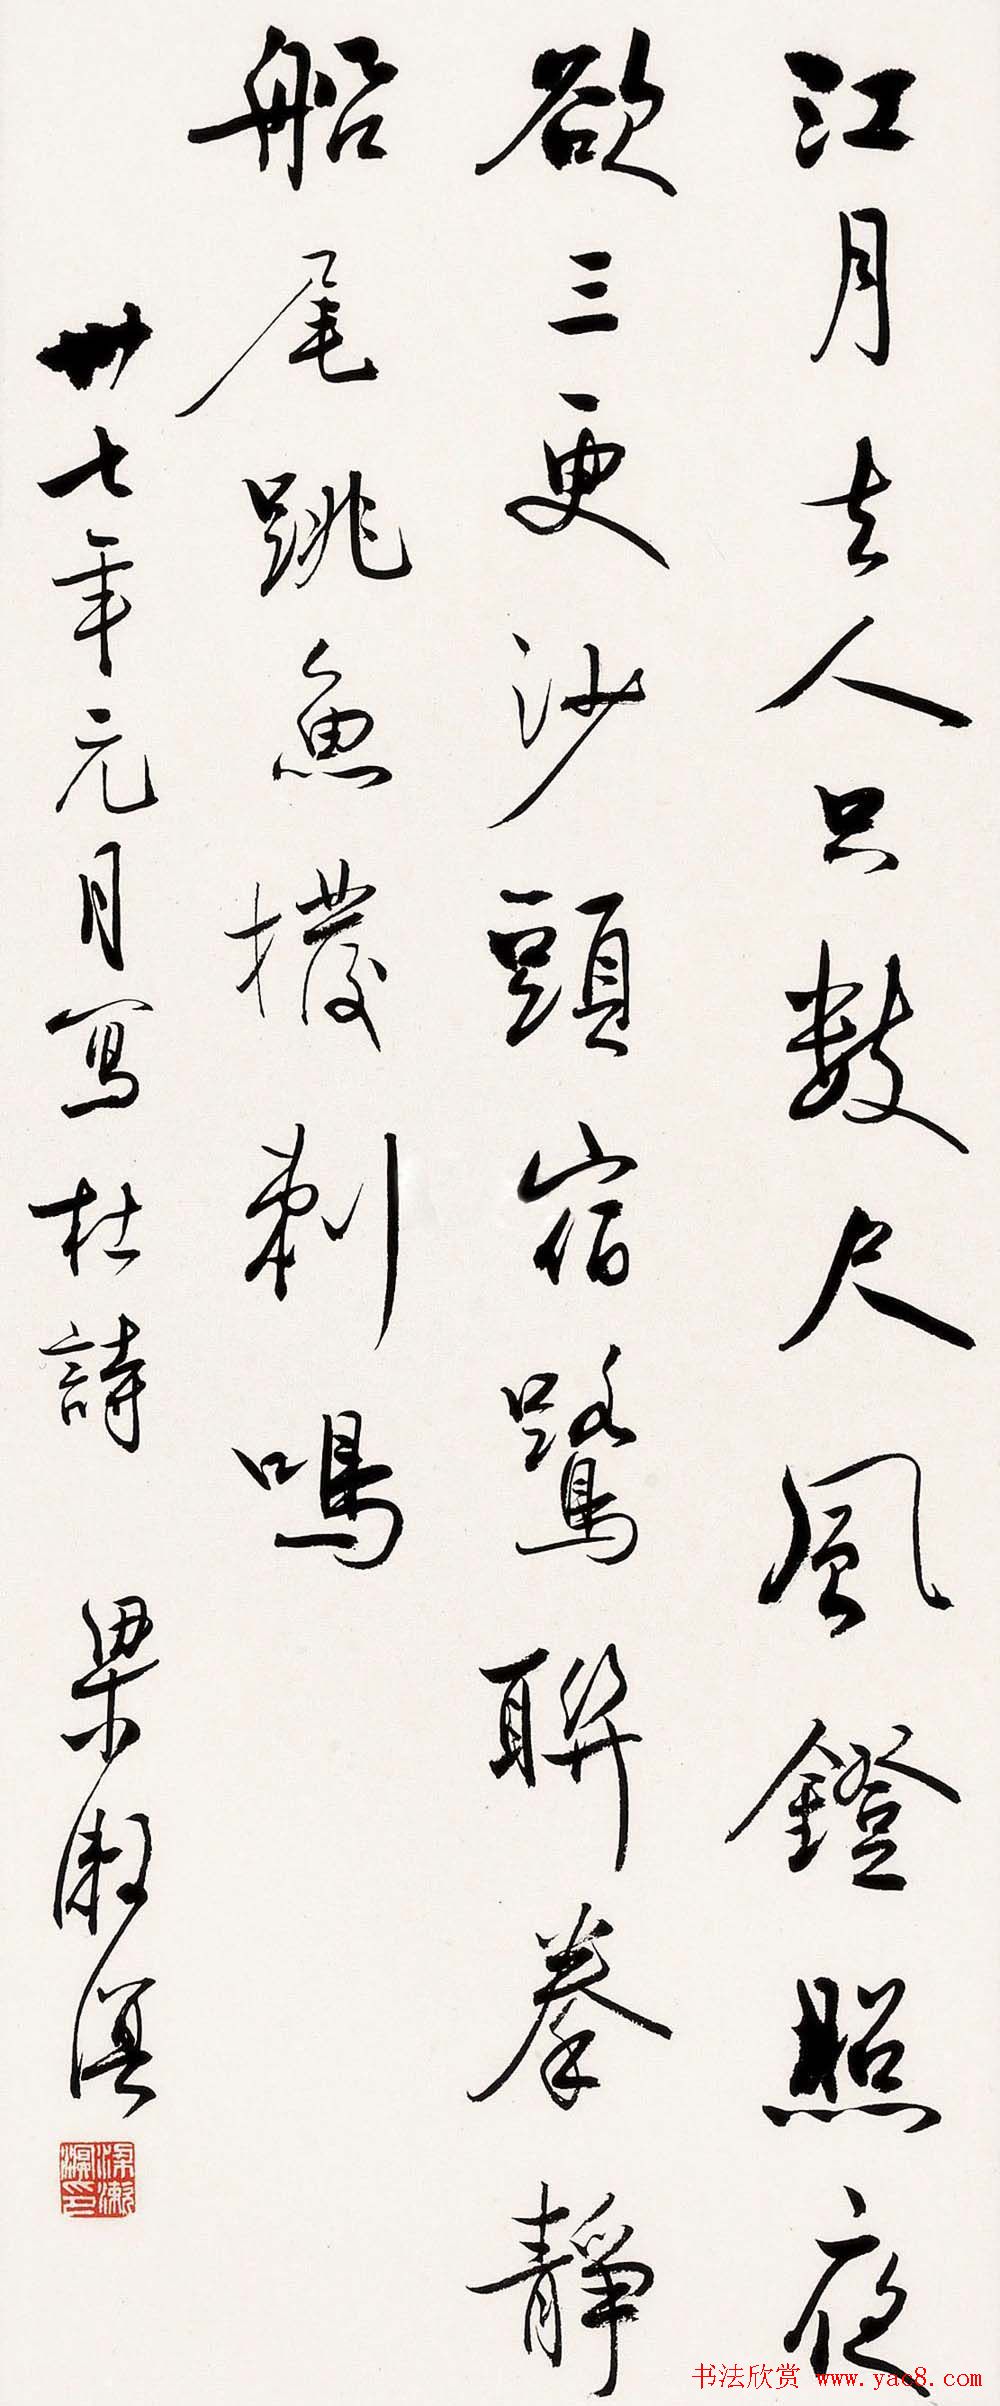 江月去人只數尺風鐙照夜
欲三更沙頭宿鷺聯拳靜
船尾跳魚撥剌鳴
卅七年元月寫杜詩 梁漱溟
梁漱溟印
书法欣赏 www.yac8.com